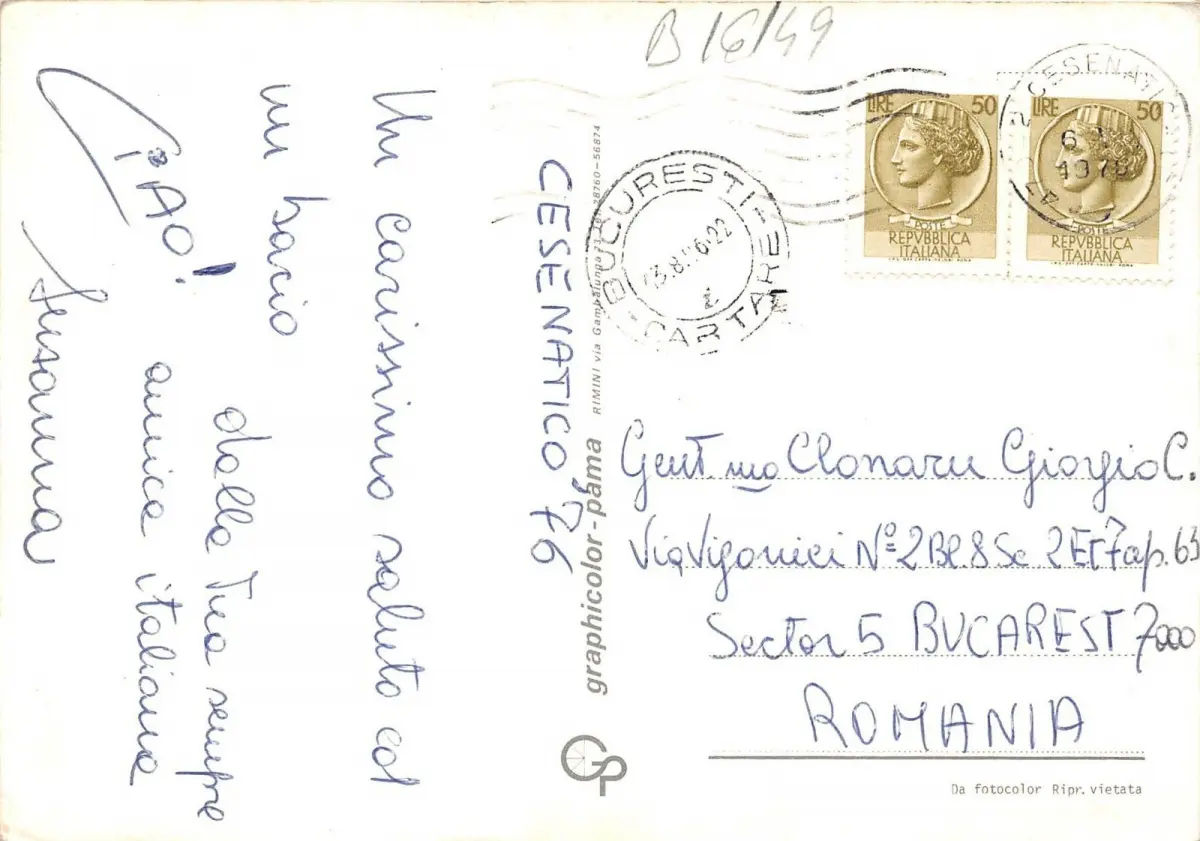 B 16/49
CESENATICO 76
Un carissimo saluto ed
un bacio
dalla Tua sempre
amica italiana
CIAO!
Susanna
graphicolor - pama
RIMINI via Gambalunga
28760-56874
GP
LIRE 50
POSTE
REPVBBLICA
ITALIANA
LIRE 50
POSTE
REPVBBLICA
ITALIANA
CESENATICO
1976
BUCURESTI
CARTARE
Gent.mo Clonaru Giorgio C.
Via Nº 2 Bl.8 Sc 2 ET 7 ap. 63
Sector 5 BUCAREST 7000
ROMANIA
Da fotocolor Ripr. vietata